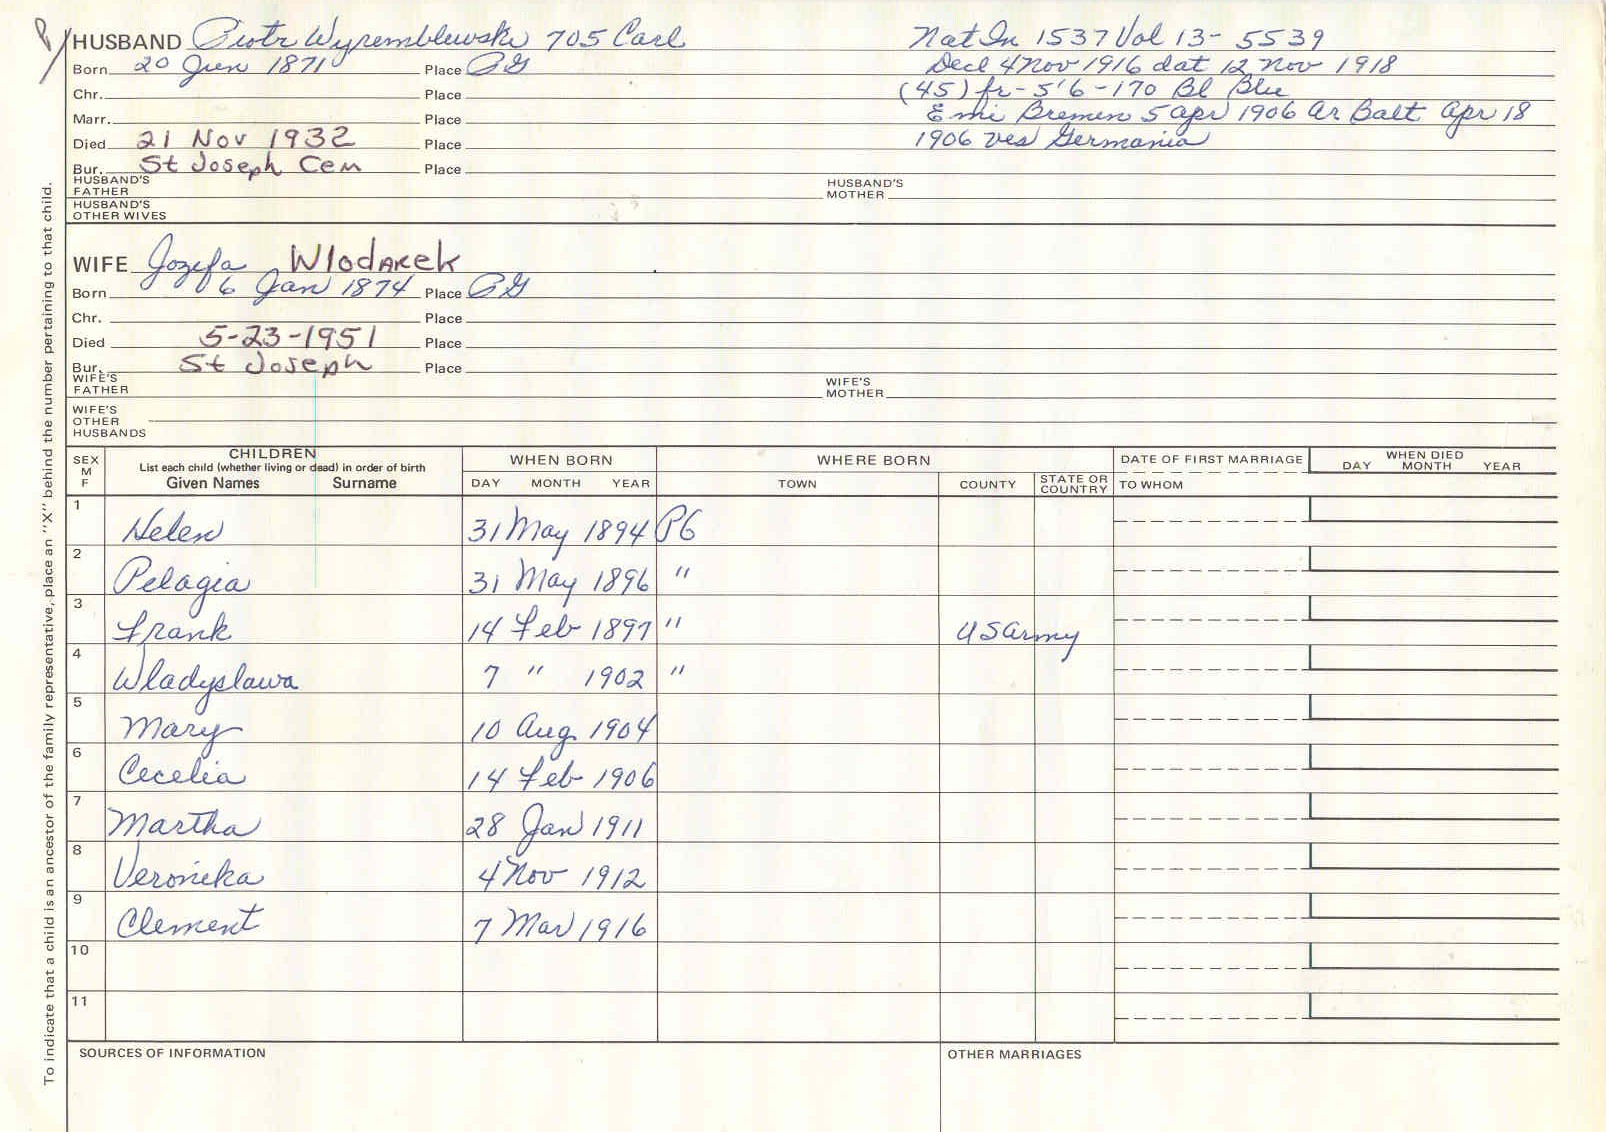 P/
HUSBAND Piotr Wyremblewski 705 Carl Nat In 1537 Vol 13- 5539
Born 20 Jun 1871 Place PG Decl 4 Nov 1916 dat 12 Nov 1918
Chr. Place (45) fr- 5'6 -170 Bl Blu
Marr. Place Emi Bremen 5 Apr 1906 Ar Balt Apr 18
Died 21 Nov 1932 Place 1906 ves Germania
Bur. St Joseph Cem Place
HUSBAND'S FATHER HUSBAND'S MOTHER
HUSBAND'S OTHER WIVES
WIFE Jozefa Wlodarek
Born 6 Jan 1874 Place PG
Chr. Place
Died 5-23-1951 Place
Bur. St Joseph Place
WIFE'S FATHER WIFE'S MOTHER
WIFE'S OTHER HUSBANDS
To indicate that a child is an ancestor of the family representative, place an "X" behind the number pertaining to that child.
SEX M F CHILDREN WHEN BORN WHERE BORN DATE OF FIRST MARRIAGE WHEN DIED
List each child (whether living or dead) in order of birth
Given Names Surname DAY MONTH YEAR TOWN COUNTY STATE OR COUNTRY TO WHOM DAY MONTH YEAR
1 Helen 31 May 1894 PG
2 Pelagia 31 May 1896 "
3 Frank 14 Feb 1897 " US Army
4 Wladyslawa 7 " 1902 "
5 Mary 10 Aug 1904
6 Cecelia 14 Feb 1906
7 Martha 28 Jan 1911
8 Veronika 4 Nov 1912
9 Clement 7 Mar 1916
10
11
SOURCES OF INFORMATION OTHER MARRIAGES